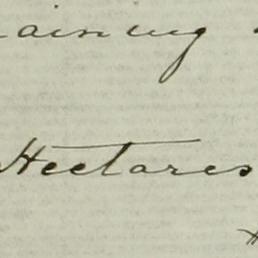 aining
Hectares